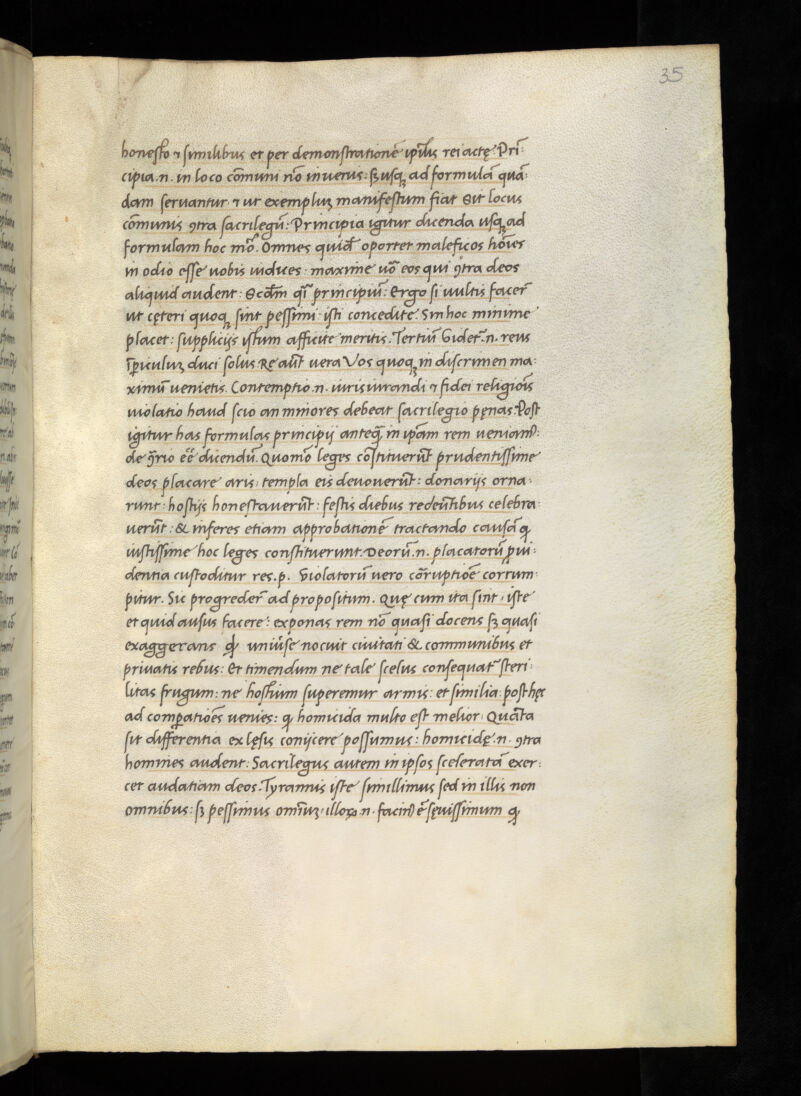 35
honesto ⁊ similibus et per demonstrationē ipsius rei actę. Prī
cipia .n. in loco cōmuni nō inuenis: sȝ usqȝ ad formulā quā
dam seruantur ⁊ ut exempluȝ manifestum fiat Sit locus
cōmunis ꝯtra sacrilegū: Principia igitur dicenda usqȝ ad
formulam hoc mō. Omnes quid oportet maleficos hōies
in odio esse uobis iudices: maxime uō eos qui ꝯtra deos
aliquid audent: Scdm qī principiū: Ergo si uultis facer̄
ut cęteri quoqȝ sint pessimi: isti concedite. Sin hoc minime
placet: supplicijs istum afficite meritis. Tertiū Videt᷑ .n. reus
ī periculuȝ duci solus Re aūt uera Vos quoqȝ in discrimen ma:
ximū uenietis. Contemptio .n. iurisiurandi ⁊ fidei religiōis
uiolatio haud scio an minores debeat sacrilegio pęnas. Post
igitur has formulas principij anteqȝ in ipsam rem ueniam᷒:
de ꝯrio eē dicendū. Quomō leges cōstituerūt prudentissime
deos placare aris: templa eis deuouerūt: donarijs orna
runt: hostijs honestauerūt: festis diebus redeūtibus celebra
uerūt: & inferes etiam approbationē tractando causā ꝙ
iustissime hoc leges constituerunt. Deorū .n. placatorū ꝓui:
dentia custoditur res .p. Violatorū uero cōrruptiōe corrum:
pitur. Sic progreder̄ ad propositum. Quę cum ita sint: iste
et quid ausus facere: exponas rem nō quasi docens sȝ quasi
exaggerans ꝙ uniūse nocuit ciuitati & communibus et
priuatis rebus: Et timendum ne tale scelus consequat᷑ steri:
litas frugum: ne hostium superemur armis: et similia: post hęc
ad comꝑatiōes uenies: ꝙ homicida multo est melior: Quāta
sit differentia ex lęsis conijcere possumus: homicidę .n. ꝯtra
hommes audent: Sacrilegus autem in ipsos sceleratā exer:
cet audatiam deos. Tyrannis iste simillimus sed in illis non
omnibus: sȝ pessimus omniuȝ. illoꝝ .n. facin᷒ ē sęuissimum ꝙ